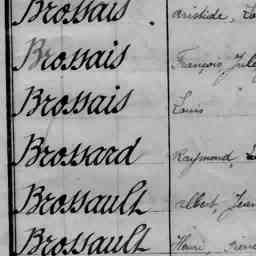 Brossais Aristide,
Brossais François Jule
Brossais Louis
Brossard Raymond,
Brossault Albert, Jean
Brossault Henri,